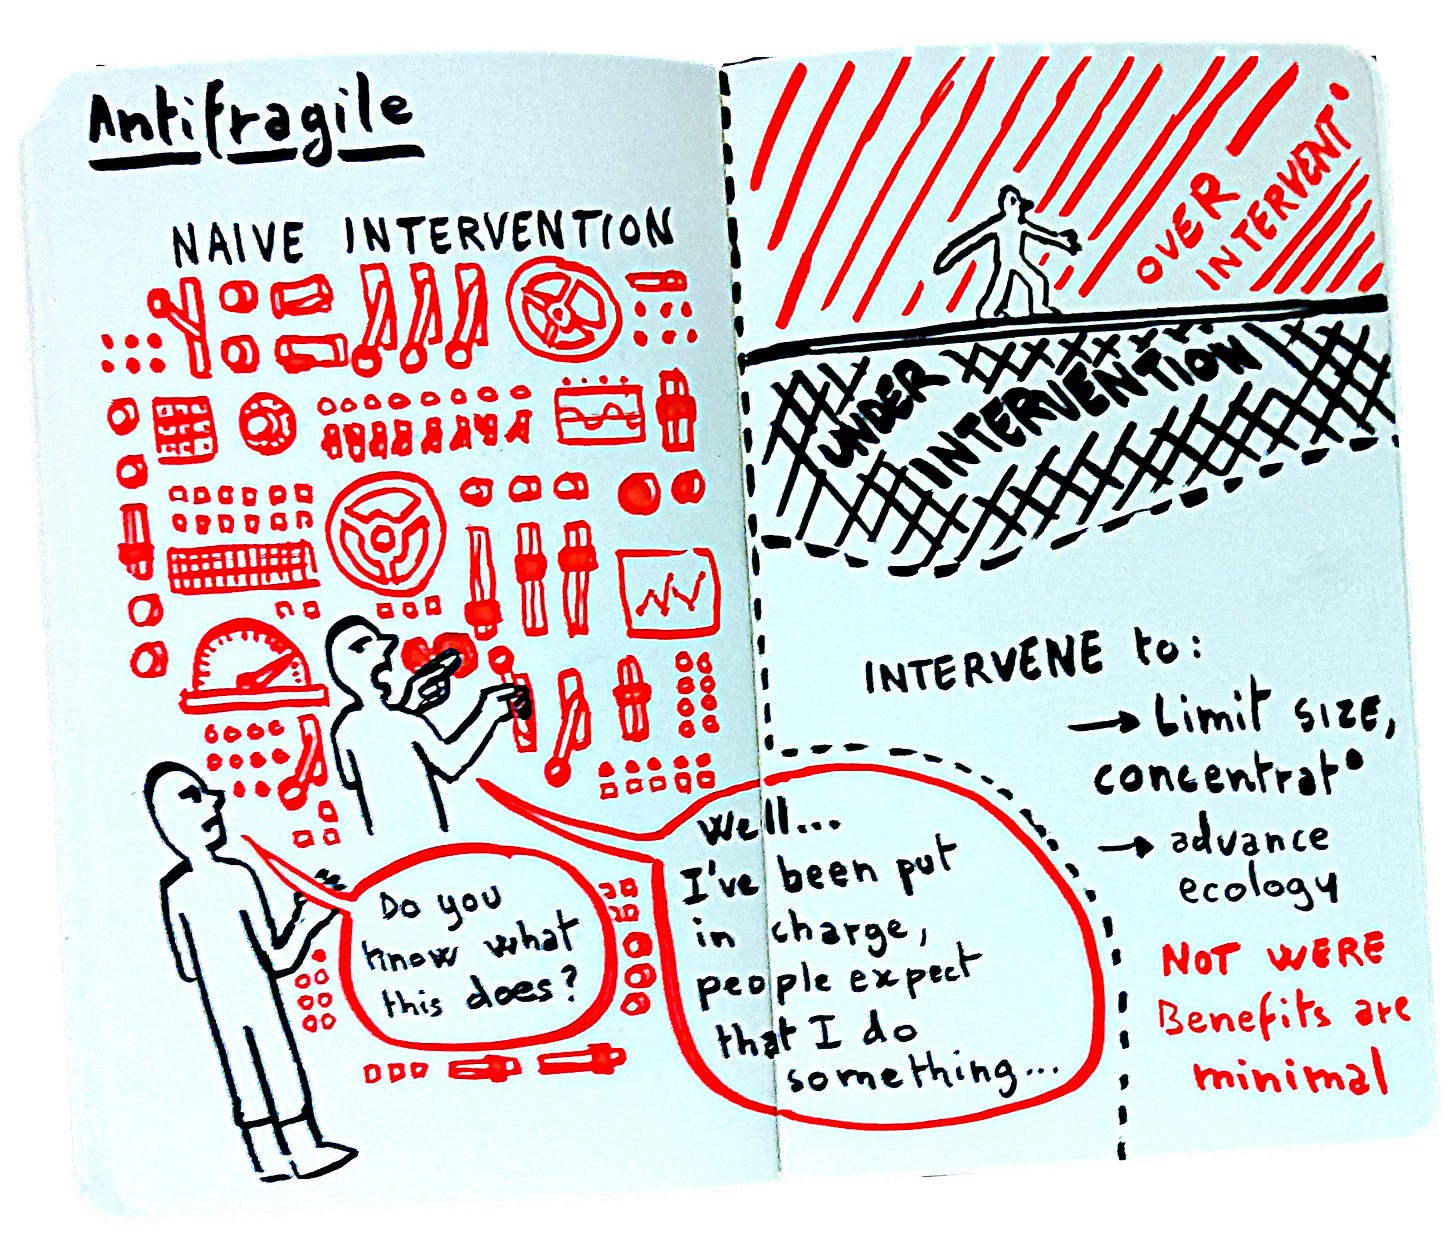 Antifragile
NAIVE INTERVENTION
Do you
know what
this does?
Well...
I've been put
in charge,
people expect
that I do
something...
OVER
INTERVENT°
UNDER
INTERVENTION
INTERVENE to:
→ Limit SIZE,
concentrat°
→ advance
ecology
NOT WERE
Benefits are
minimal